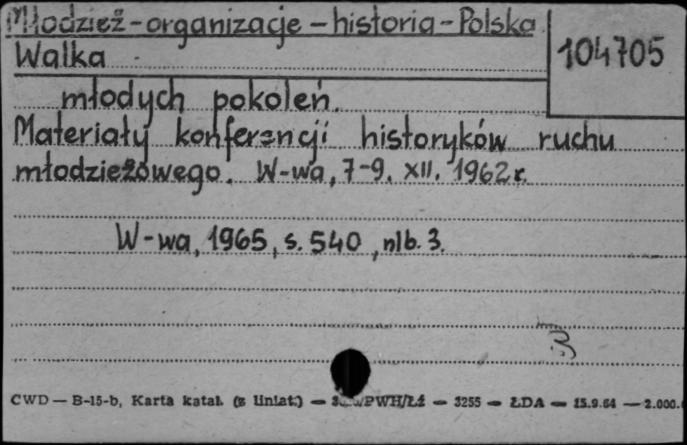 Młodzież - organizacje - historia - Polska
104705
Walka
młodych pokoleń.
Materiały konferencji historyków ruchu
młodzieżowego. W-wa, 7-9. XII. 1962 r.
W-wa, 1965, s. 540, nlb. 3.
CWD — B-15-b, Karta katal. (z liniat.) — PWH/Łź — 3255 — ŁDA — 15.9.64 — 2.000.